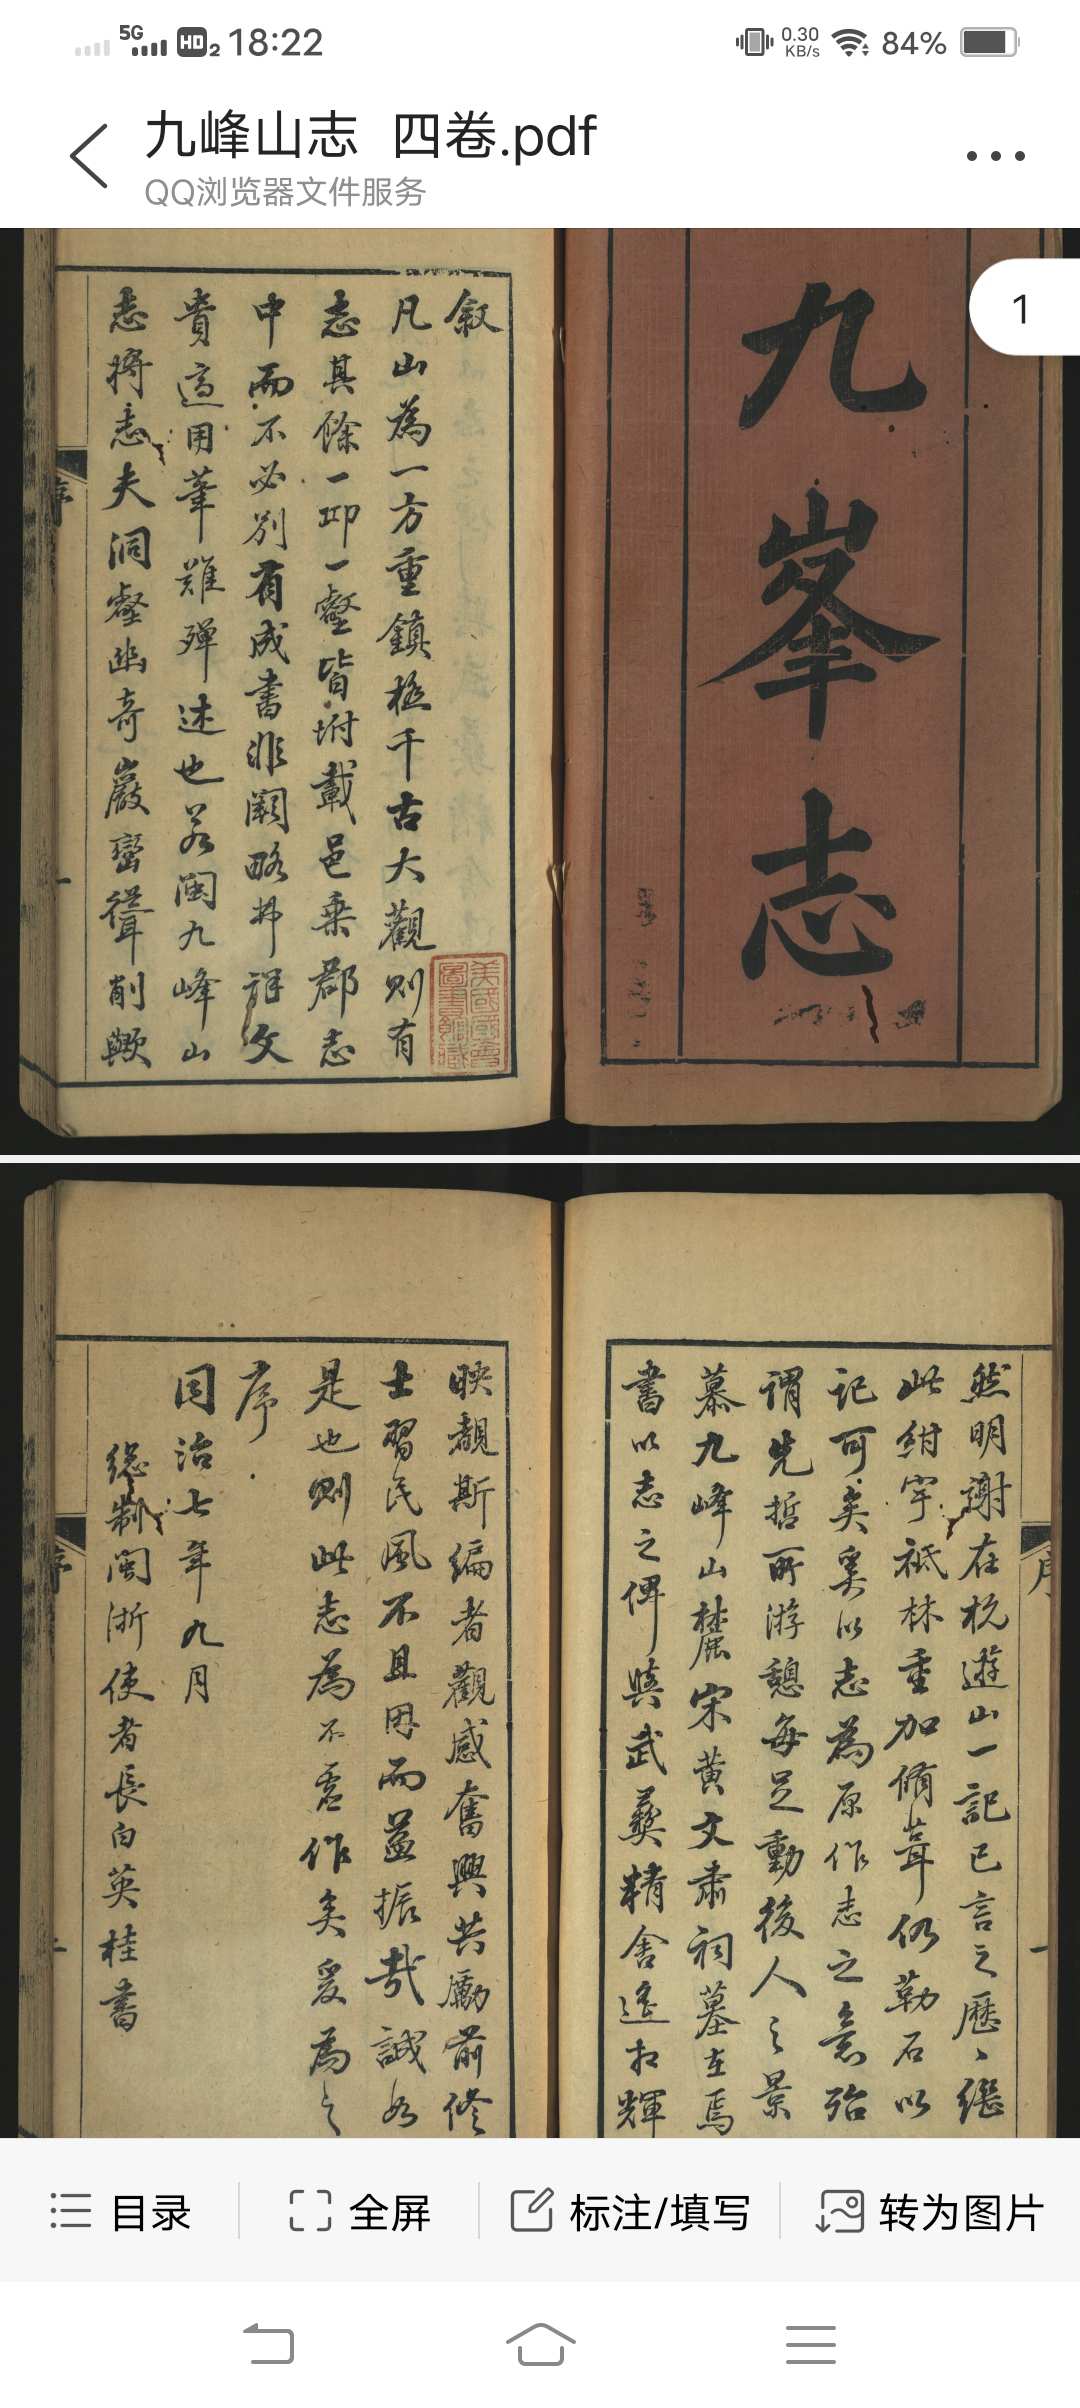 5G HD 2 18:22 0.30 KB/s 84%
九峰山志 四卷.pdf
QQ浏览器文件服务
1
九峯志
敘
凡山為一方重鎮極千古大觀則有
志其餘一邱一壑皆坿載邑乗郡志
中而不必别有成書非闕略也詳文
貴適用筆難殫述也若閩九峰山
志將志夫洞壑幽奇巖巒聳削歟
美國國會圖書館藏
序
一
然明謝在杭遊山一記已言之歷、繼
此紺宇祗林重加脩葺仍勒石以
記可矣奚以志為原作志之意殆
謂先哲所游憩每足動後人之景
慕九峰山麓宋黃文肅祠墓在焉
書以志之俾與武彝精舍遙相輝
序
一
映覩斯編者觀感奮興共勵前修
士習民風不且因而益振哉誠如
是也則此志為不虛作矣爰為之
序
同治七年九月
總制閩浙使者長白英桂書
序
目录 全屏 标注/填写 转为图片